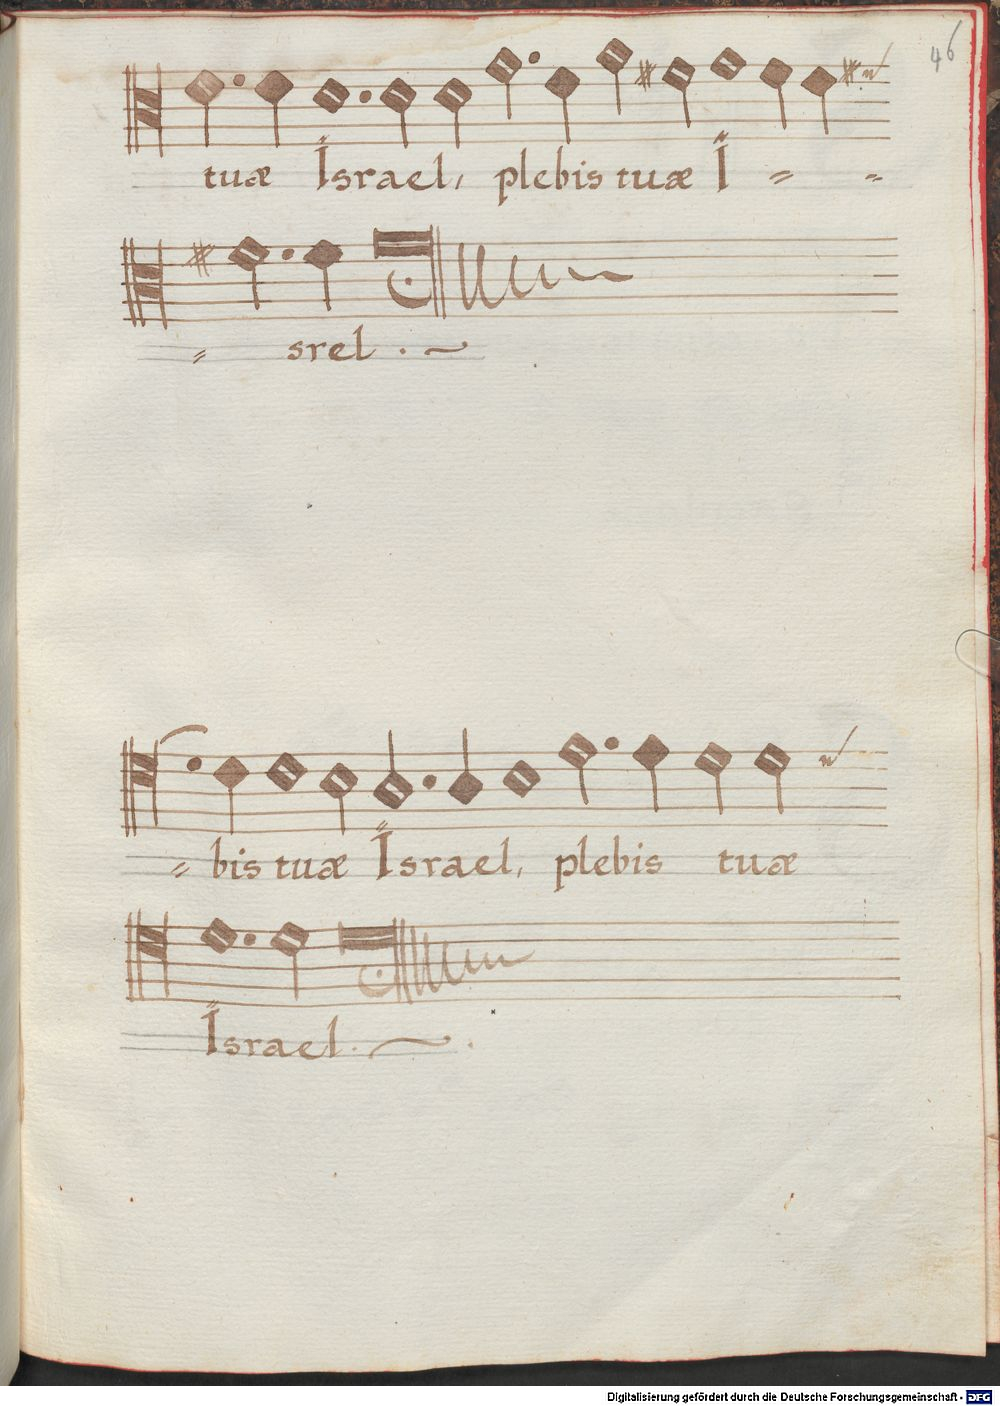 46
tuæ Israel, plebis tuæ I = =
= srel .
= bis tuæ Israel, plebis tuæ
Israel .
Digitalisierung gefördert durch die Deutsche Forschungsgemeinschaft - DFG